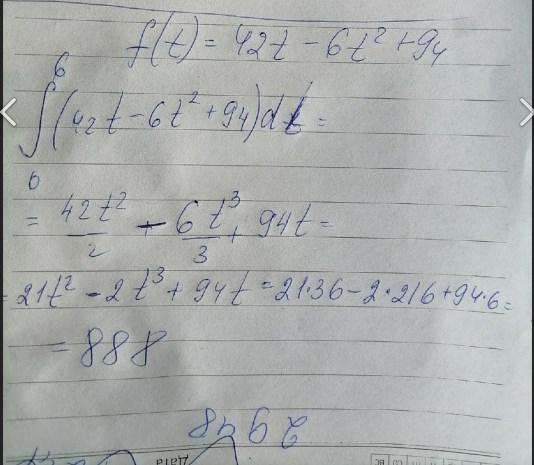 f(t) = 42t - 6t² + 94
6
∫(42t - 6t² + 94)dt =
0
= 42t²/2 - 6t³/3 + 94t =
= 21t² - 2t³ + 94t = 21·36 - 2·216 + 94·6 =
= 888
2948
Дата